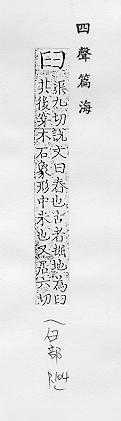 四聲篇海
臼
渠九切說文曰舂也古者掘地為臼
其後穿木石象形中米也又居六切
(臼部